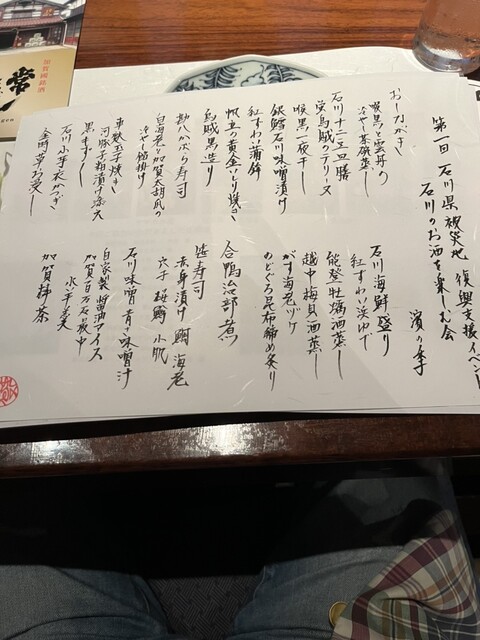 第一回 石川県被災地 復興支援イベント
石川のお酒を楽しむ会
濱の季
おしながき
喉黒と雲丹の
冷やし茶碗蒸し
石川十二ヶ豆皿膳
蛍烏賊のテリーヌ
喉黒一夜干し
銀鱈石川味噌漬け
紅ずわい蒲鉾
帆立の黄金いしり焼き
烏賊黒造り
勘八かぶら寿司
白海老と加賀太胡瓜の
冷やし餡掛け
車麩玉子焼き
河豚子粕漬け
黒まき
石川小芋衣かつぎ
金時草お浸し
石川海鮮盛り
紅ずわい浜ゆで
能登牡蠣酒蒸し
越中梅貝酒蒸し
がす海老ヅケ
のどぐろ昆布締め炙り
合鴨治部煮
笹寿司
赤身漬け 鯛 海老
穴子 桜鱒 小肌
石川味噌 青さ味噌汁
自家製醤油アイス
加賀百万石最中
水羊羹
加賀棒茶
常
加賀國銘酒